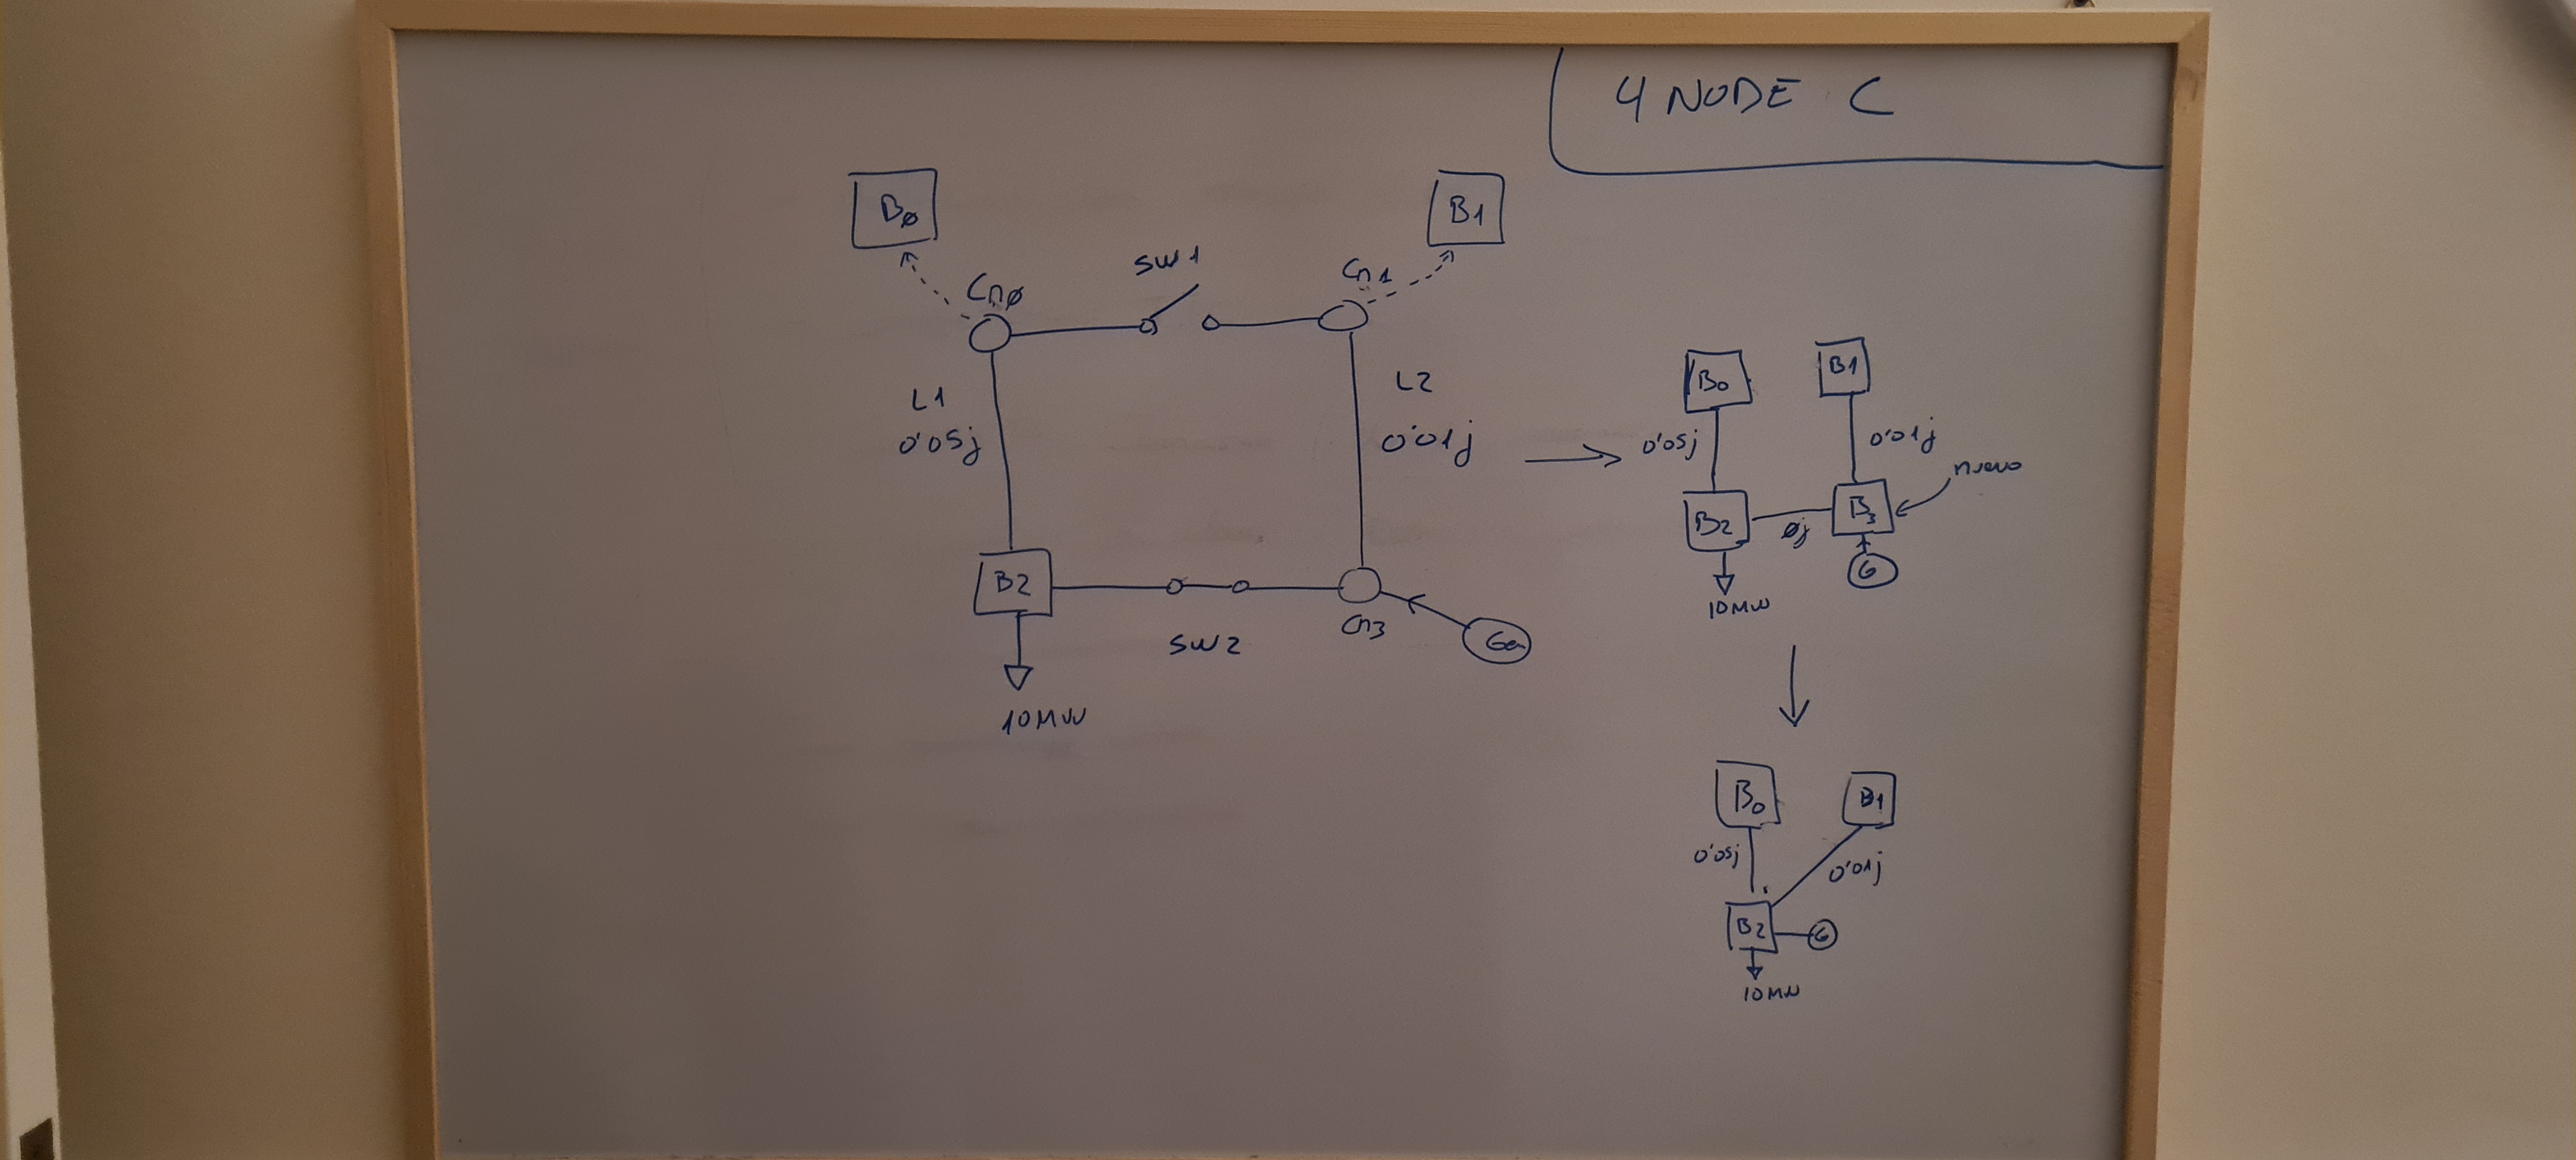 4 NODE C
BØ
B1
SW1
CnØ
Cn1
L1
0'05j
L2
0'01j
B2
SW2
Cn3
Gen
10MW
B0
B1
0'05j
0'01j
nuevo
B2
Øj
B3
G
10MW
B0
B1
0'05j
0'01j
B2
G
10MW